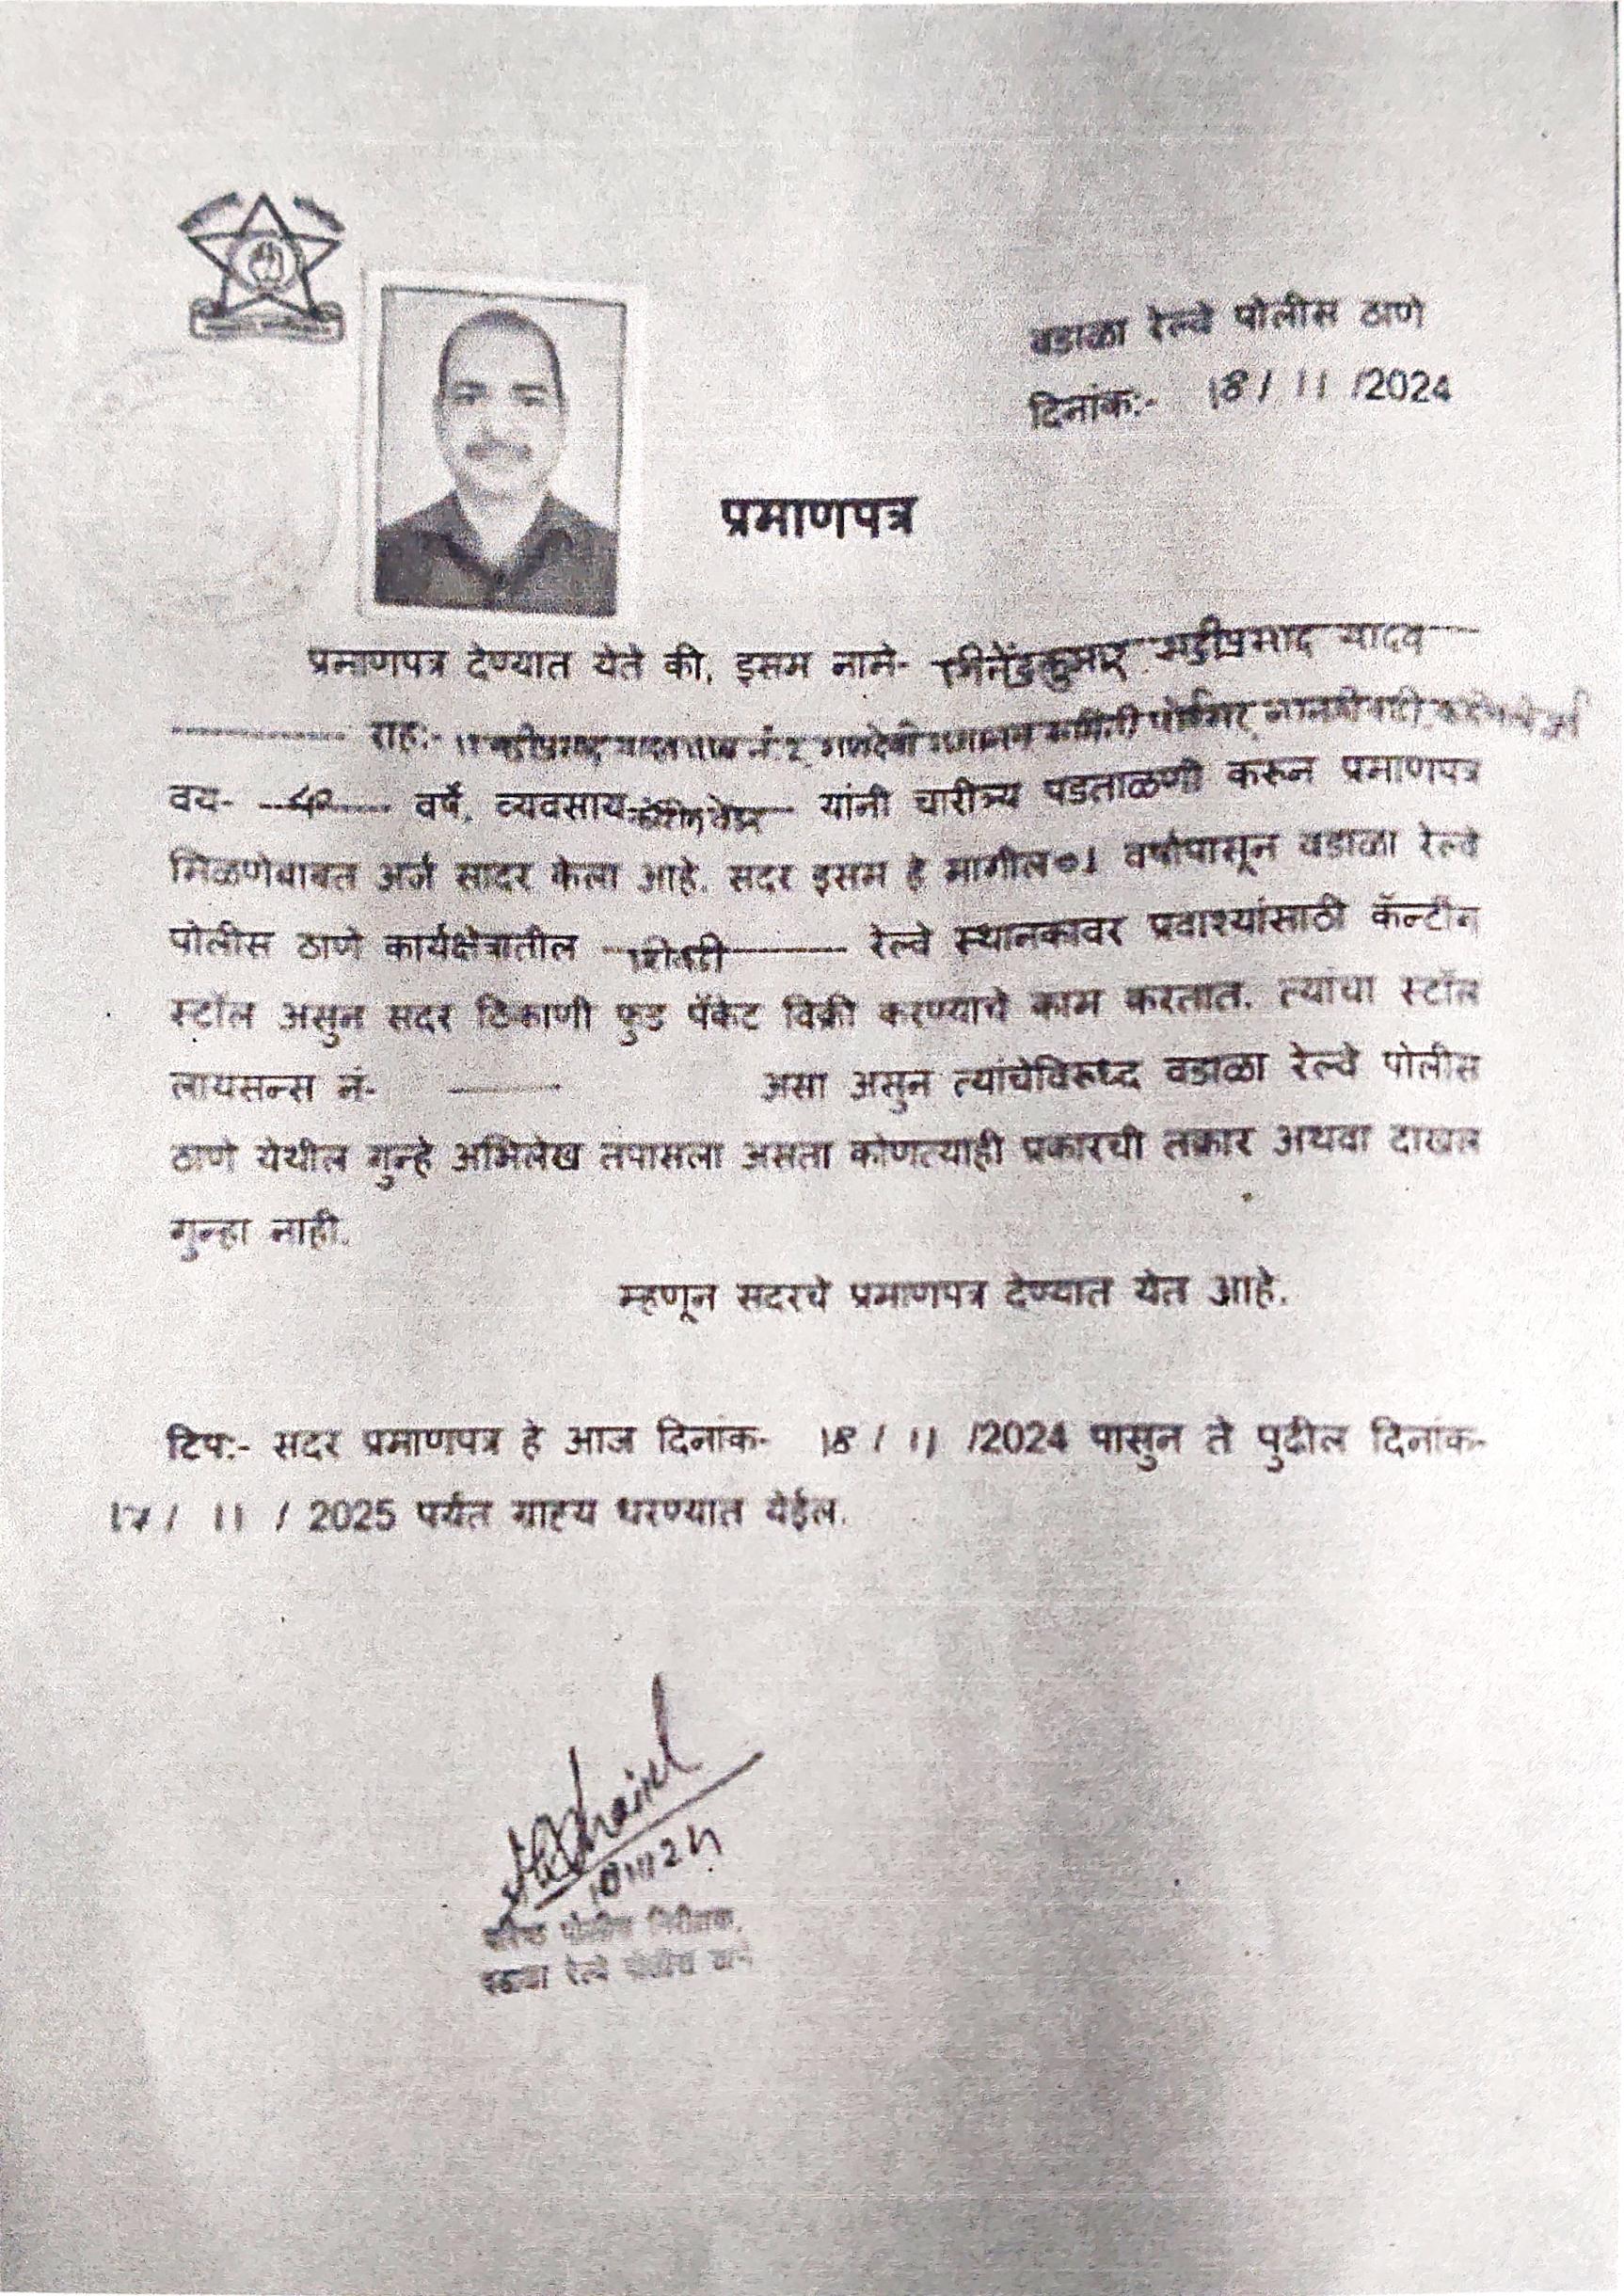 वडाळा रेल्वे पोलीस ठाणे
दिनांक:- 18 / 11 /2024
प्रमाणपत्र
प्रमाणपत्र देण्यात येते की, इसम नामे- यादव
राह:-
वय- वर्षे, व्यवसाय यांनी चारीत्र्य पडताळणी करून प्रमाणपत्र
मिळणेबाबत अर्ज सादर केला आहे. सदर इसम हे मागील ०1 वर्षापासून वडाळा रेल्वे
पोलीस ठाणे कार्यक्षेत्रातील रेल्वे स्थानकावर प्रवाश्यांसाठी कॅन्टीन
स्टॉल असुन सदर ठिकाणी फुड पॅकेट विक्री करण्याचे काम करतात. त्यांचा स्टॉल
लायसन्स नं- असा असुन त्यांचेविरुध्द वडाळा रेल्वे पोलीस
ठाणे येथील गुन्हे अभिलेख तपासला असता कोणत्याही प्रकारची तक्रार अथवा दाखल
गुन्हा नाही.
म्हणून सदरचे प्रमाणपत्र देण्यात येत आहे.
टिप:- सदर प्रमाणपत्र हे आज दिनांक- 18 / 11 /2024 पासुन ते पुढील दिनांक-
17 / 11 / 2025 पर्यंत ग्राह्य धरण्यात येईल.
वरिष्ठ पोलीस निरीक्षक,
वडाळा रेल्वे पोलीस ठाणे